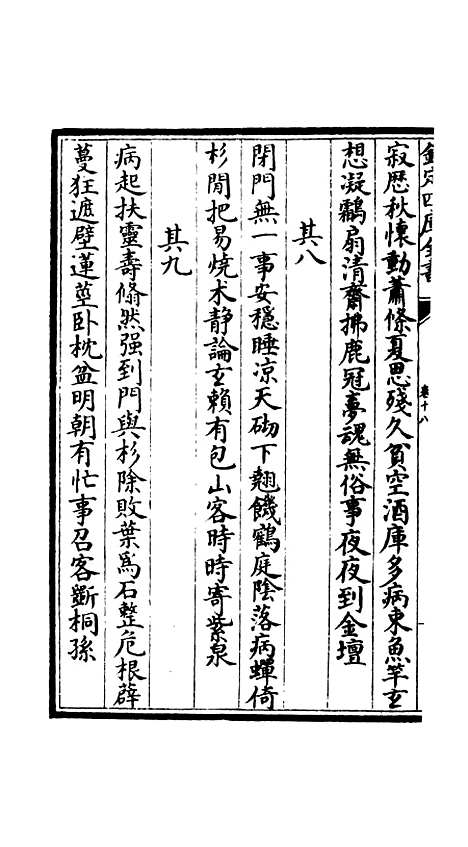 欽定四庫全書
卷十八
寂歴秋懷動蕭條夏思殘久貧空酒庫多病束魚竿玄
想凝鸘扇清齋拂鹿冠夢魂無俗事夜夜到金壇
其八
閉門無一事安穏睡凉天砌下翹饑鶴庭陰落病蟬倚
杉閒把易燒术静論玄賴有包山客時時寄紫泉
其九
病起扶靈壽翛然强到門與杉除敗葉爲石整危根薜
蔓狂遮壁蓮莖卧枕盆明朝有忙事召客斵桐孫